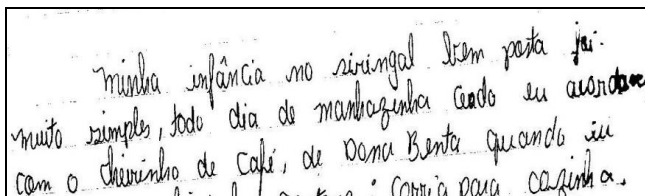 minha infância no siringal bem posta foi
muito simples, todo dia de manhazinha cedo eu acordava
com o cheirinho de café, de Dona Benta quando iu
corria para cozinha,